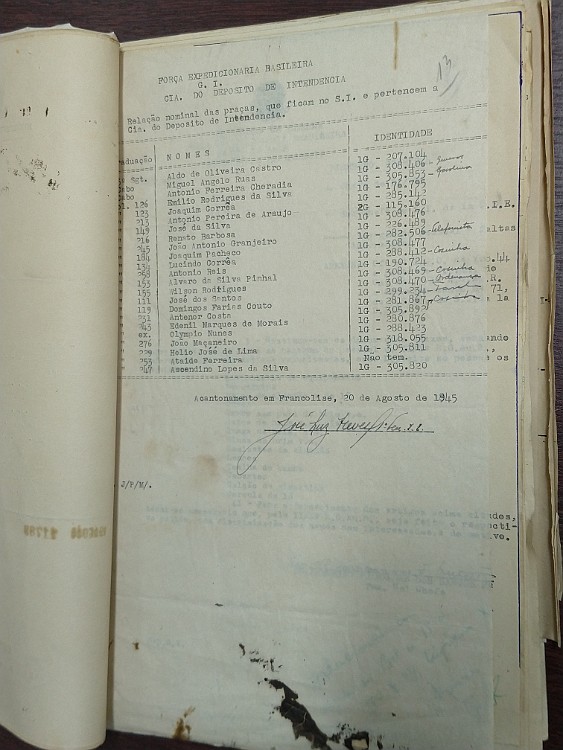 13
FORÇA EXPEDICIONARIA BASILEIRA
G. I.
CIA. DO DEPOSITO DE INTENDENCIA
Relação nominal das praças, que ficam no S.I. e pertencem a
Cia. do Deposito de Intendencia.
raduação NOMES IDENTIDADE
Sgt. Aldo de Oliveira Castro 1G - 207.104
Cabo Miguel Angelo Ruas 1G - 308.406
Cabo Antonio Ferreira Choradia 1G - 305.853
126 Emilio Rodrigues da Silva 1G - 176.795
123 Joaquim Corrêa 1G - 285.142
213 Antonio Pereira de Araujo 2G - 115.160
149 José da Silva 1G - 308.476
216 Renato Barbosa 1G - 226.489
245 João Antonio Granjeiro 1G - 282.506
184 Joaquim Pacheco 1G - 308.477
Lucindo Corrêa 1G - 288.412 - Cosinha
268 Antonio Reis 1G - 190.724
153 Alvaro da Silva Pinhal 1G - 308.469 - Cosinha
155 Wilson Rodrigues 1G - 308.470
111 José dos Santos 1G - 299.234
119 Domingos Farias Couto 1G - 281.867
231 Antenor Costa 1G - 305.892
243 Edenil Marques de Morais 1G - 280.876
ex. Olympio Nunes 1G - 288.423
276 João Maçaneiro 1G - 318.055
229 Helio José de Lima 1G - 305.811
253 Ataide Ferreira Não tem.
247 Ascendino Lopes da Silva 1G - 305.820
Acantonamento em Francolise, 20 de Agosto de 1945
José Luiz
J/P/M/.
I.E.
altas
44
R.
71,
a la
ando
os
des,
cti-
ve.